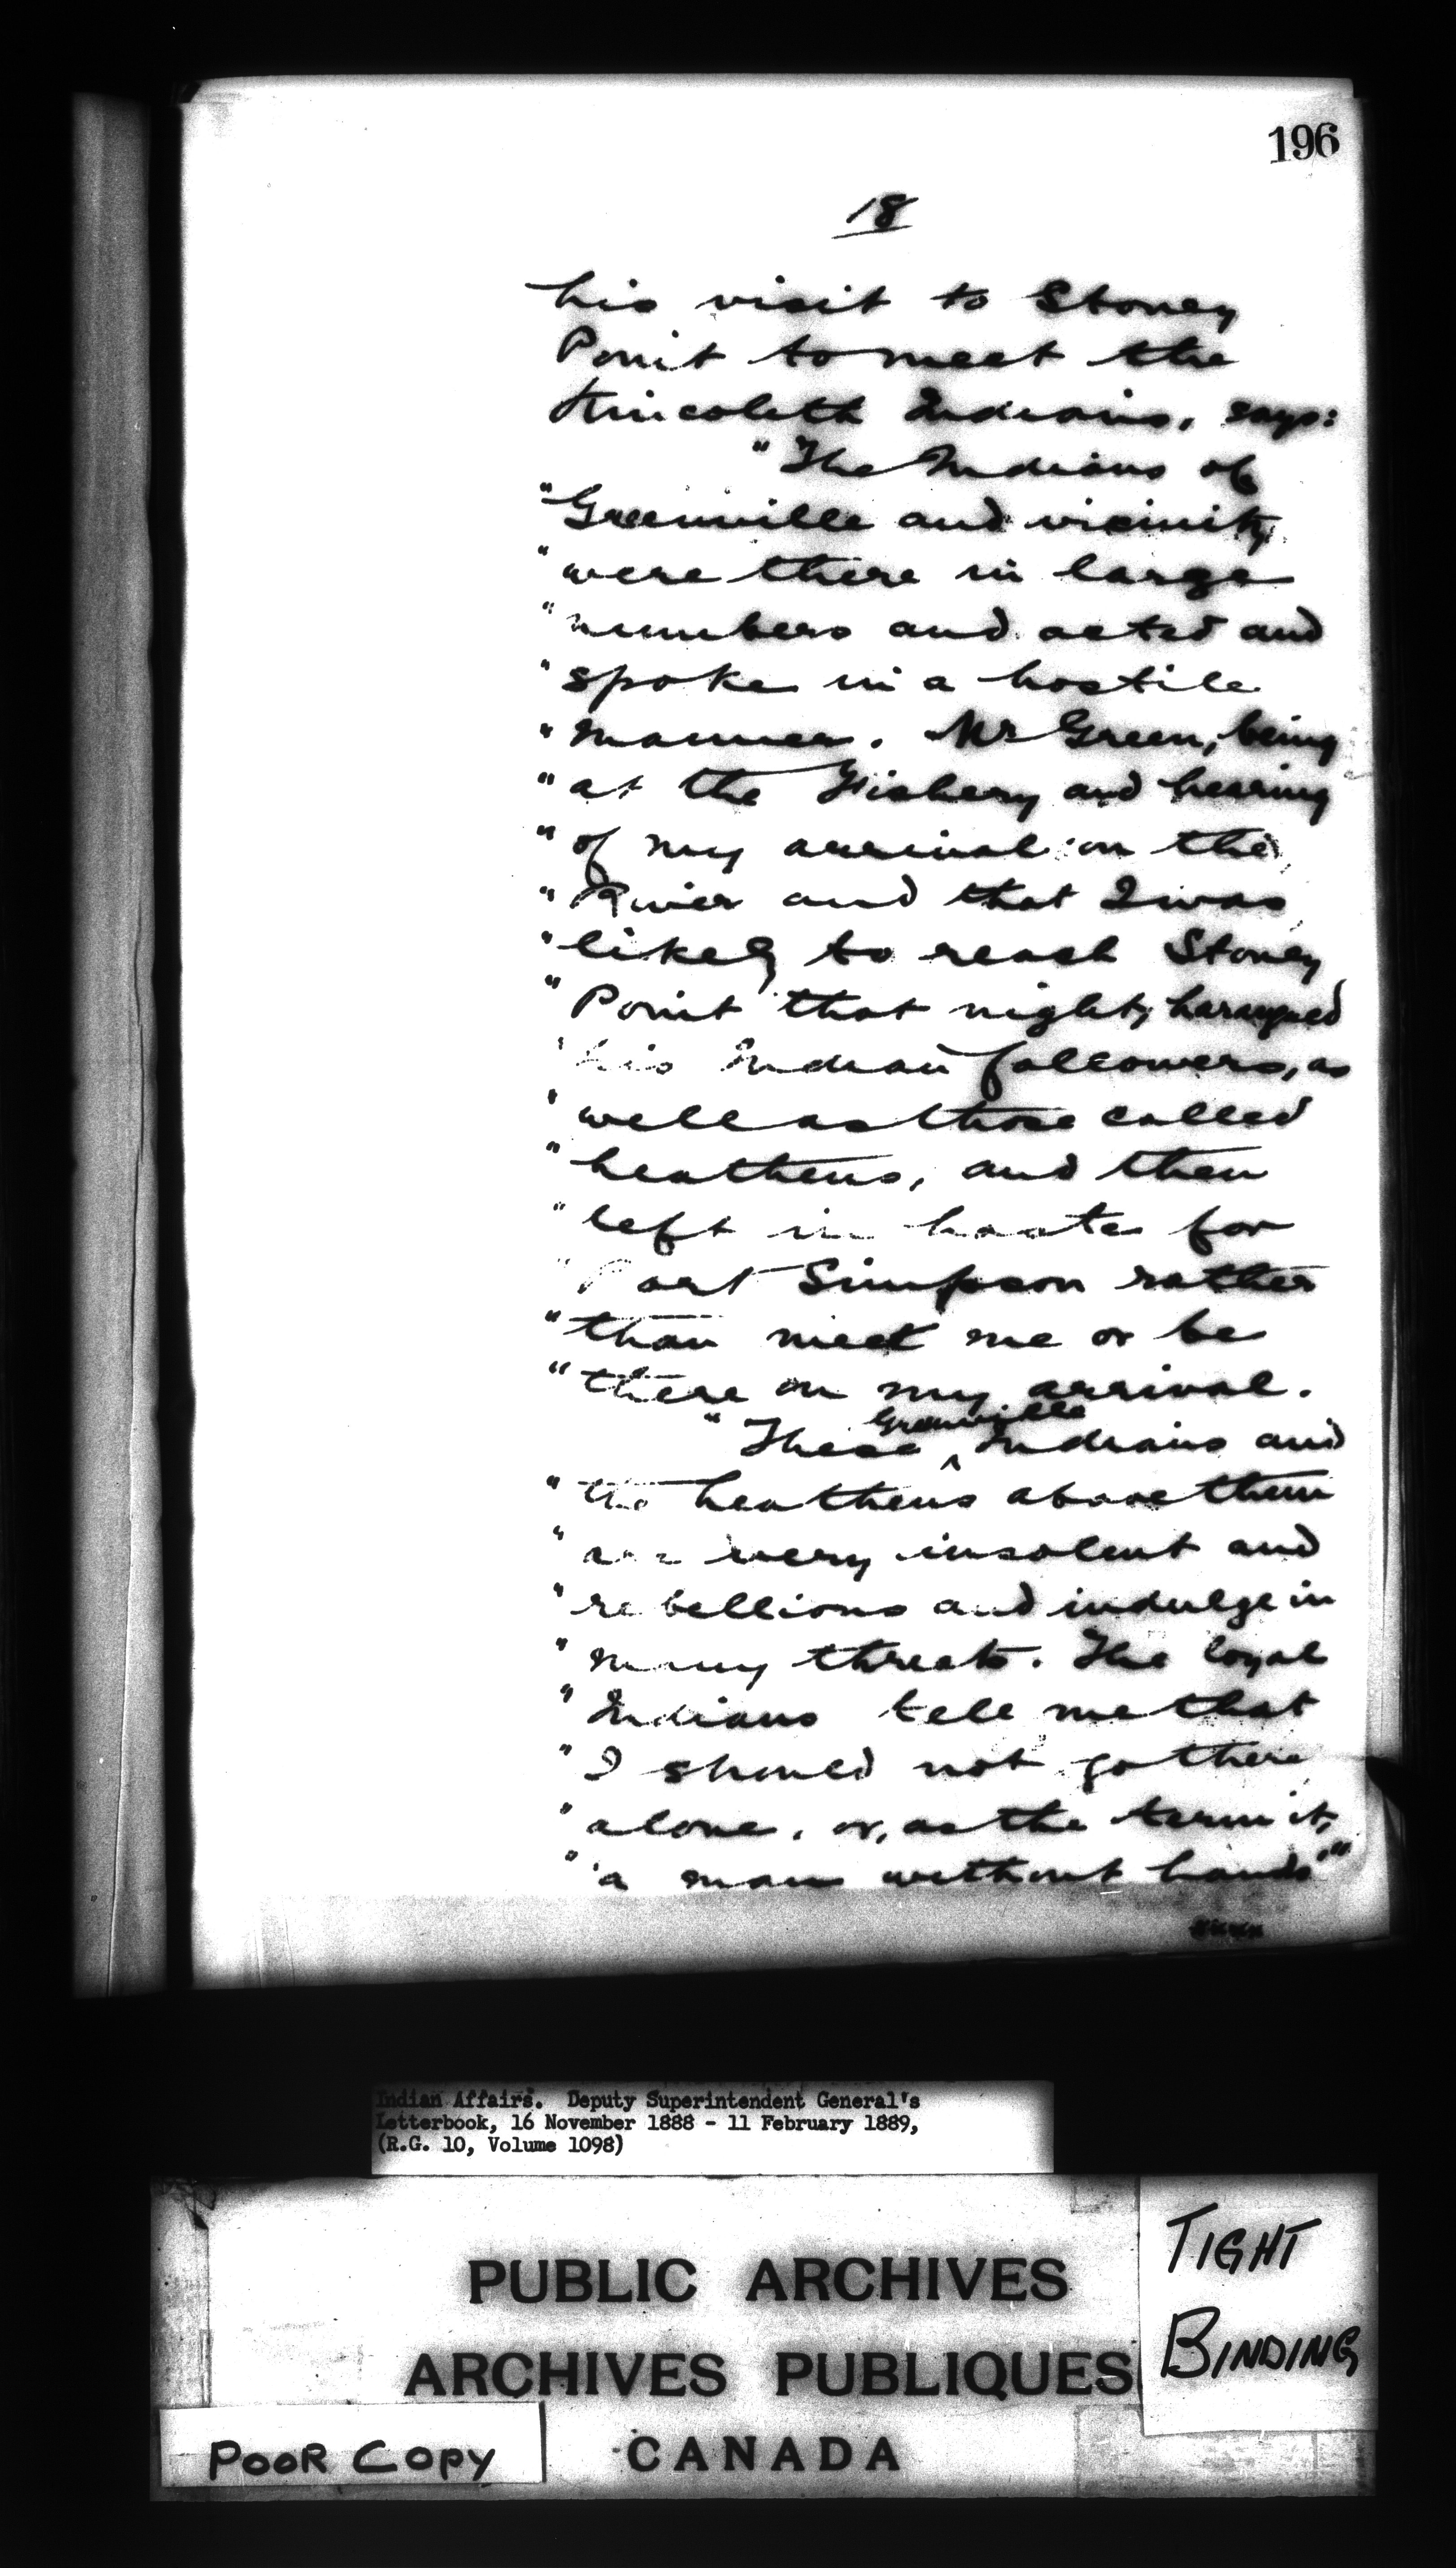 196
18
his visit to Stoney
Point to meet the
Kincolith Indians, says:
"The Indians of
"Greenville and vicinity
"were there in large
"numbers and acted and
"spoke in a hostile
"manner. Mr Green, being
"at the Fishery and hearing
"of my arrival on the
"River and that I was
"likely to reach Stoney
"Point that night, harangued
"his Indian followers, as
"well as those called
"heathens, and then
"left in haste for
"Port Simpson rather
"than meet me or be
"there on my arrival.
Greenville
"These ^ Indians and
"the heathens above them
"are very insolent and
"rebellious and indulge in
"many threats. The loyal
"Indians tell me that
"I should not go there
"alone, or, as the term it,
"'a man without hands'"
Indian Affairs. Deputy Superintendent General's
Letterbook, 16 November 1888 - 11 February 1889,
(R.G. 10, Volume 1098)
PUBLIC ARCHIVES
ARCHIVES PUBLIQUES
CANADA
TIGHT
BINDING
POOR COPY